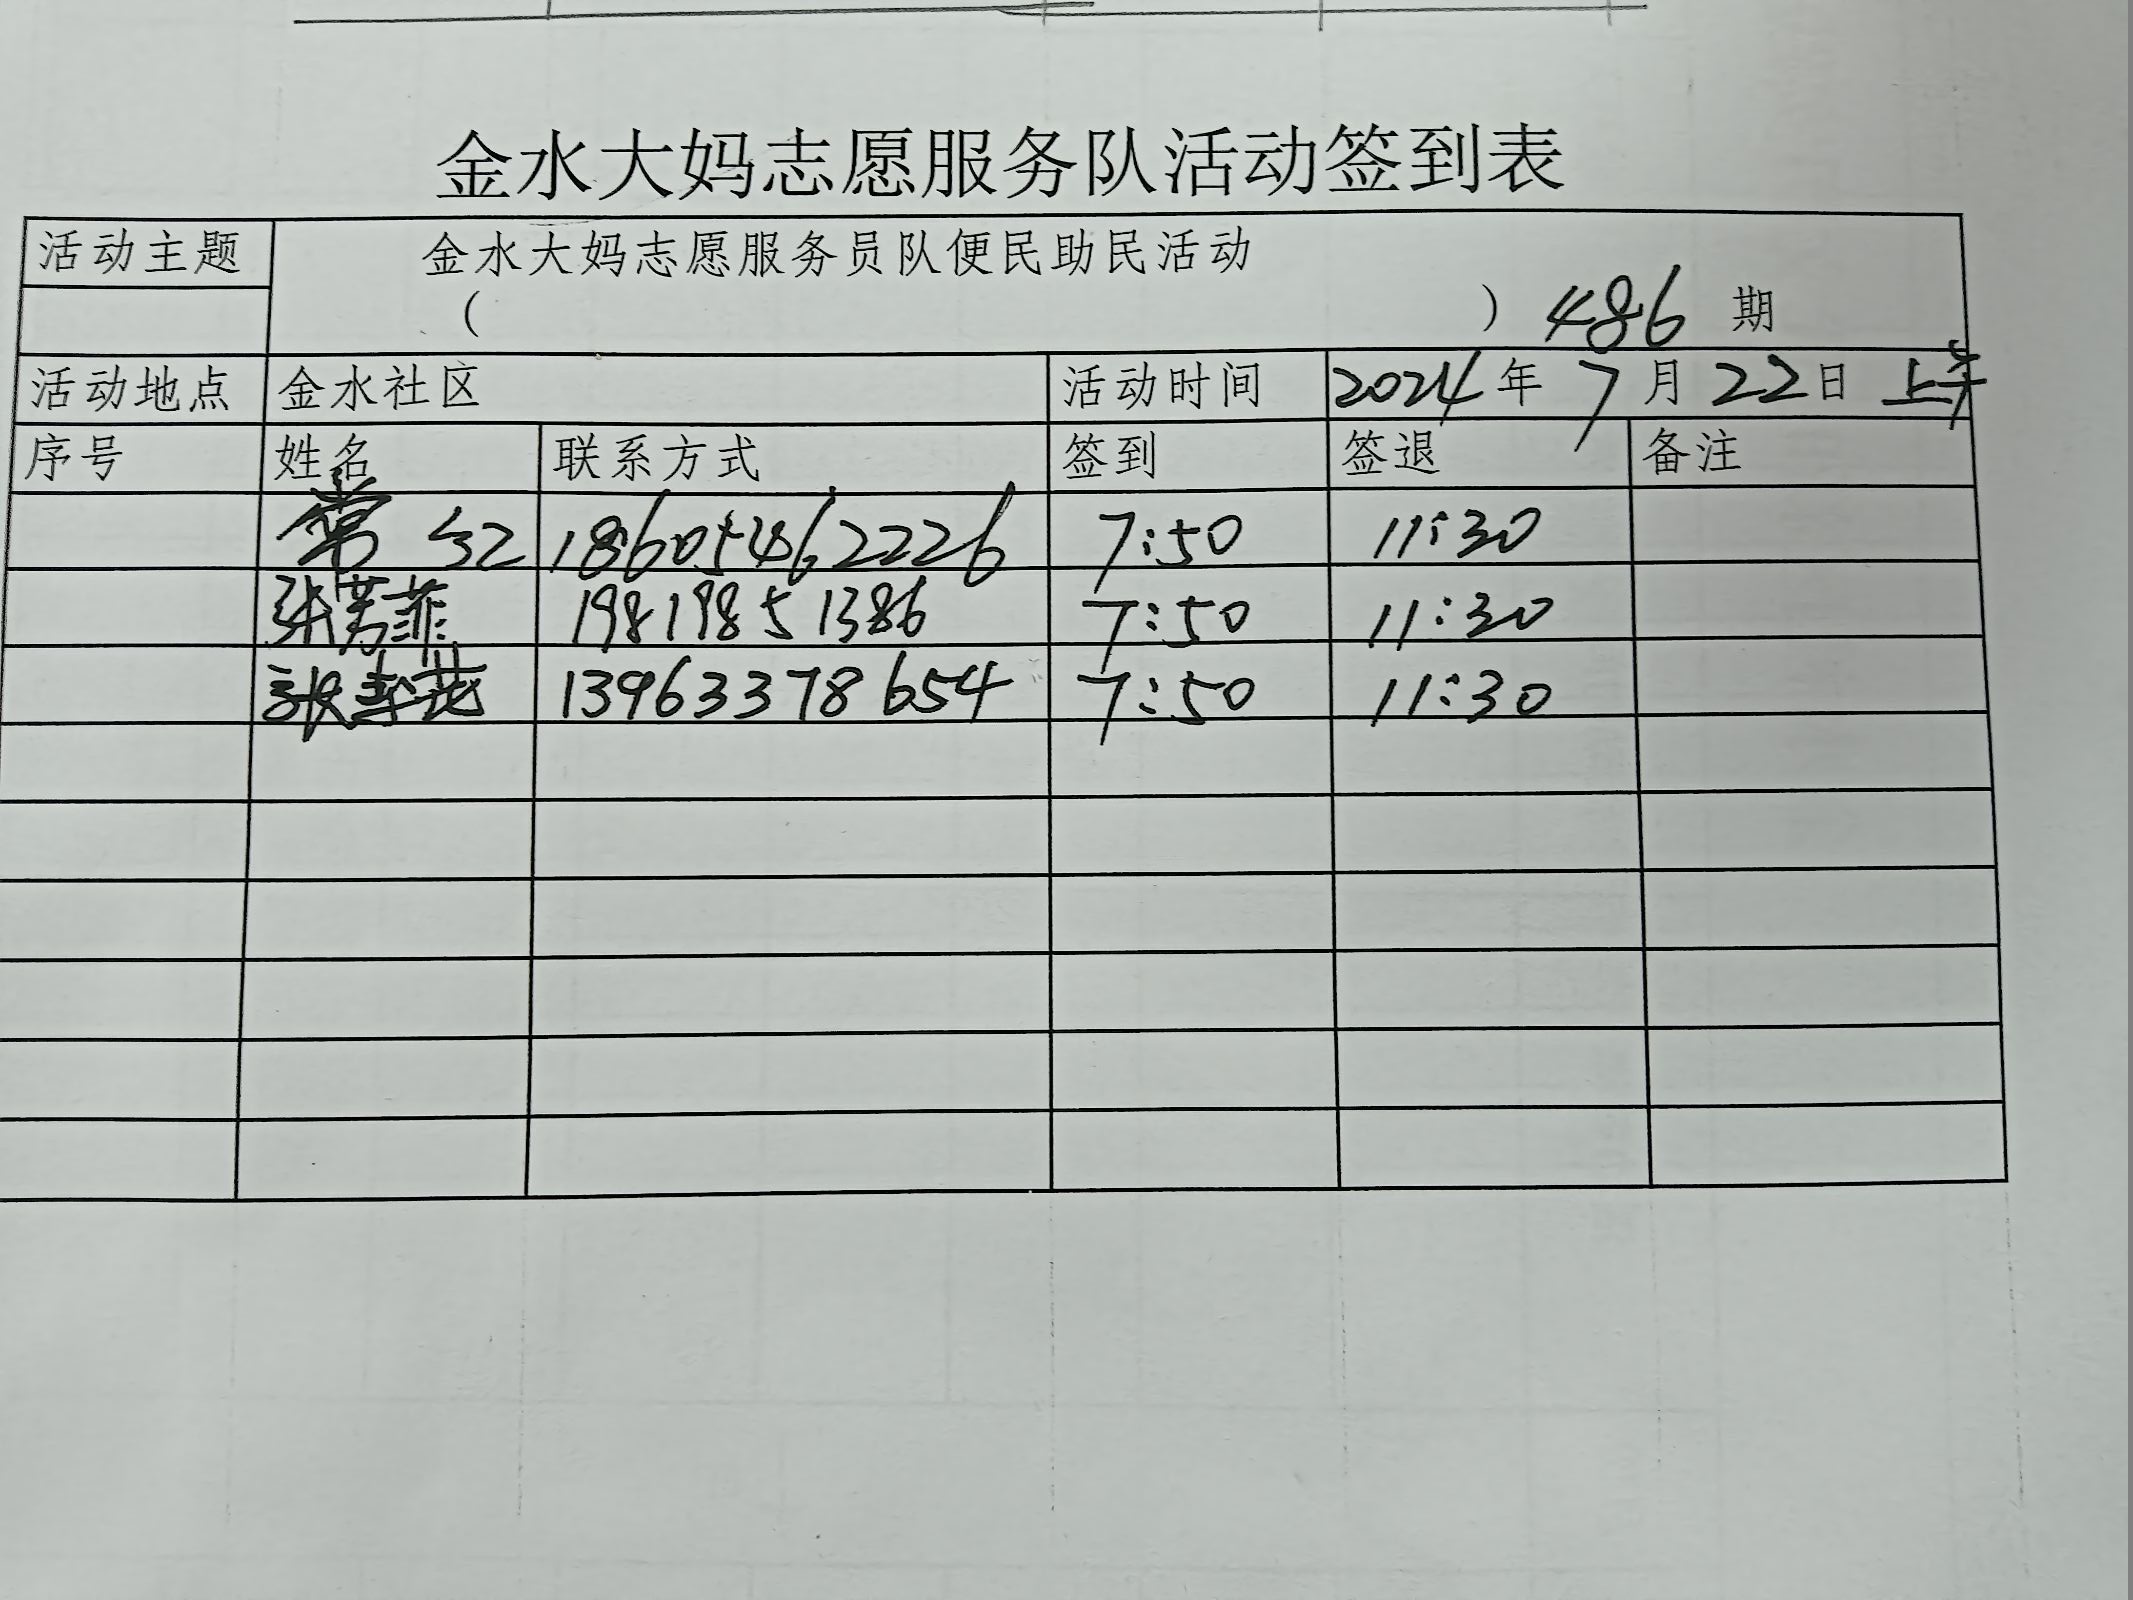 金水大妈志愿服务队活动签到表
活动主题 金水大妈志愿服务员队便民助民活动
( ) 486 期
活动地点 金水社区 活动时间 2024年 7月22日 上午
序号 姓名 联系方式 签到 签退 备注
常红 18605462226 7:50 11:30
张芳菲 19819851386 7:50 11:30
张春花 13963378654 7:50 11:30